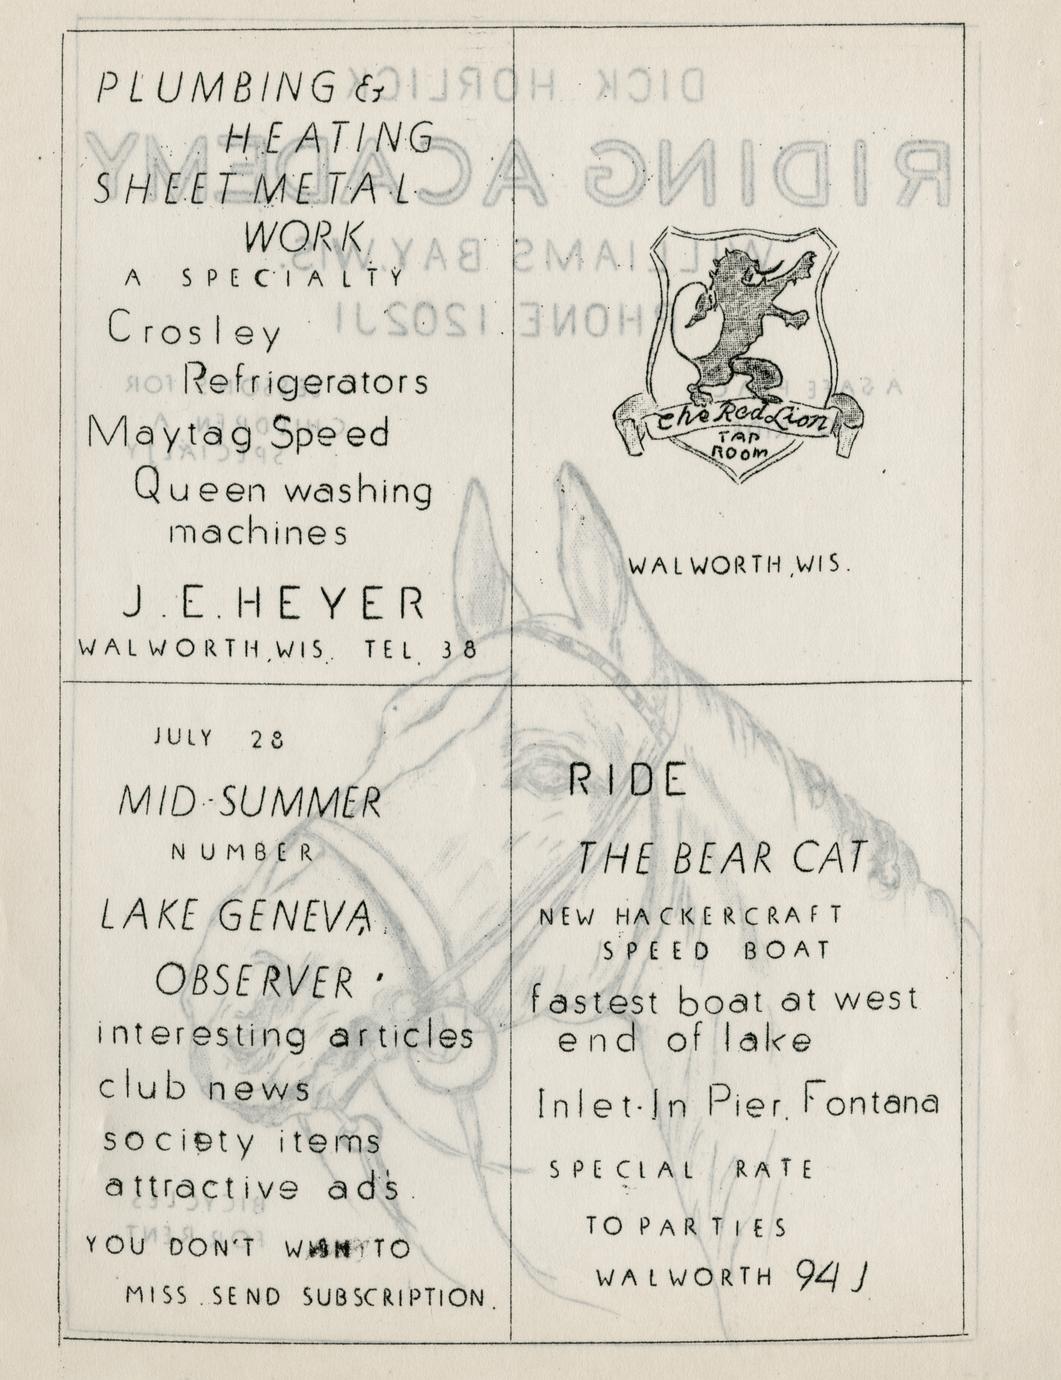 PLUMBING &
HEATING
SHEET METAL
WORK
A SPECIALTY
Crosley
Refrigerators
Maytag Speed
Queen washing
machines
J.E. HEYER
WALWORTH, WIS. TEL. 38
The Red Lion
TAP
ROOM
WALWORTH, WIS.
JULY 28
MID-SUMMER
NUMBER
LAKE GENEVA
OBSERVER
interesting articles
club news
society items
attractive ad's.
YOU DON'T WISH TO
MISS. SEND SUBSCRIPTION.
RIDE
THE BEAR CAT
NEW HACKERCRAFT
SPEED BOAT
fastest boat at west
end of lake
Inlet-In Pier, Fontana
SPECIAL RATE
TO PARTIES
WALWORTH 94 J
DICK HORLICK
RIDING ACADEMY
WILLIAMS BAY, WIS.
PHONE 1202J1
A SAFE
FOR
CHILDREN A
SPECIALTY
BICYCLES
FOR RENT